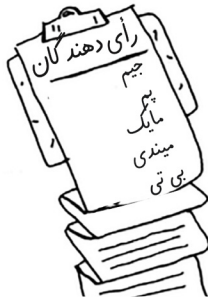 رأی دهندگان
جیم
پم
مایک
میندی
بی تی